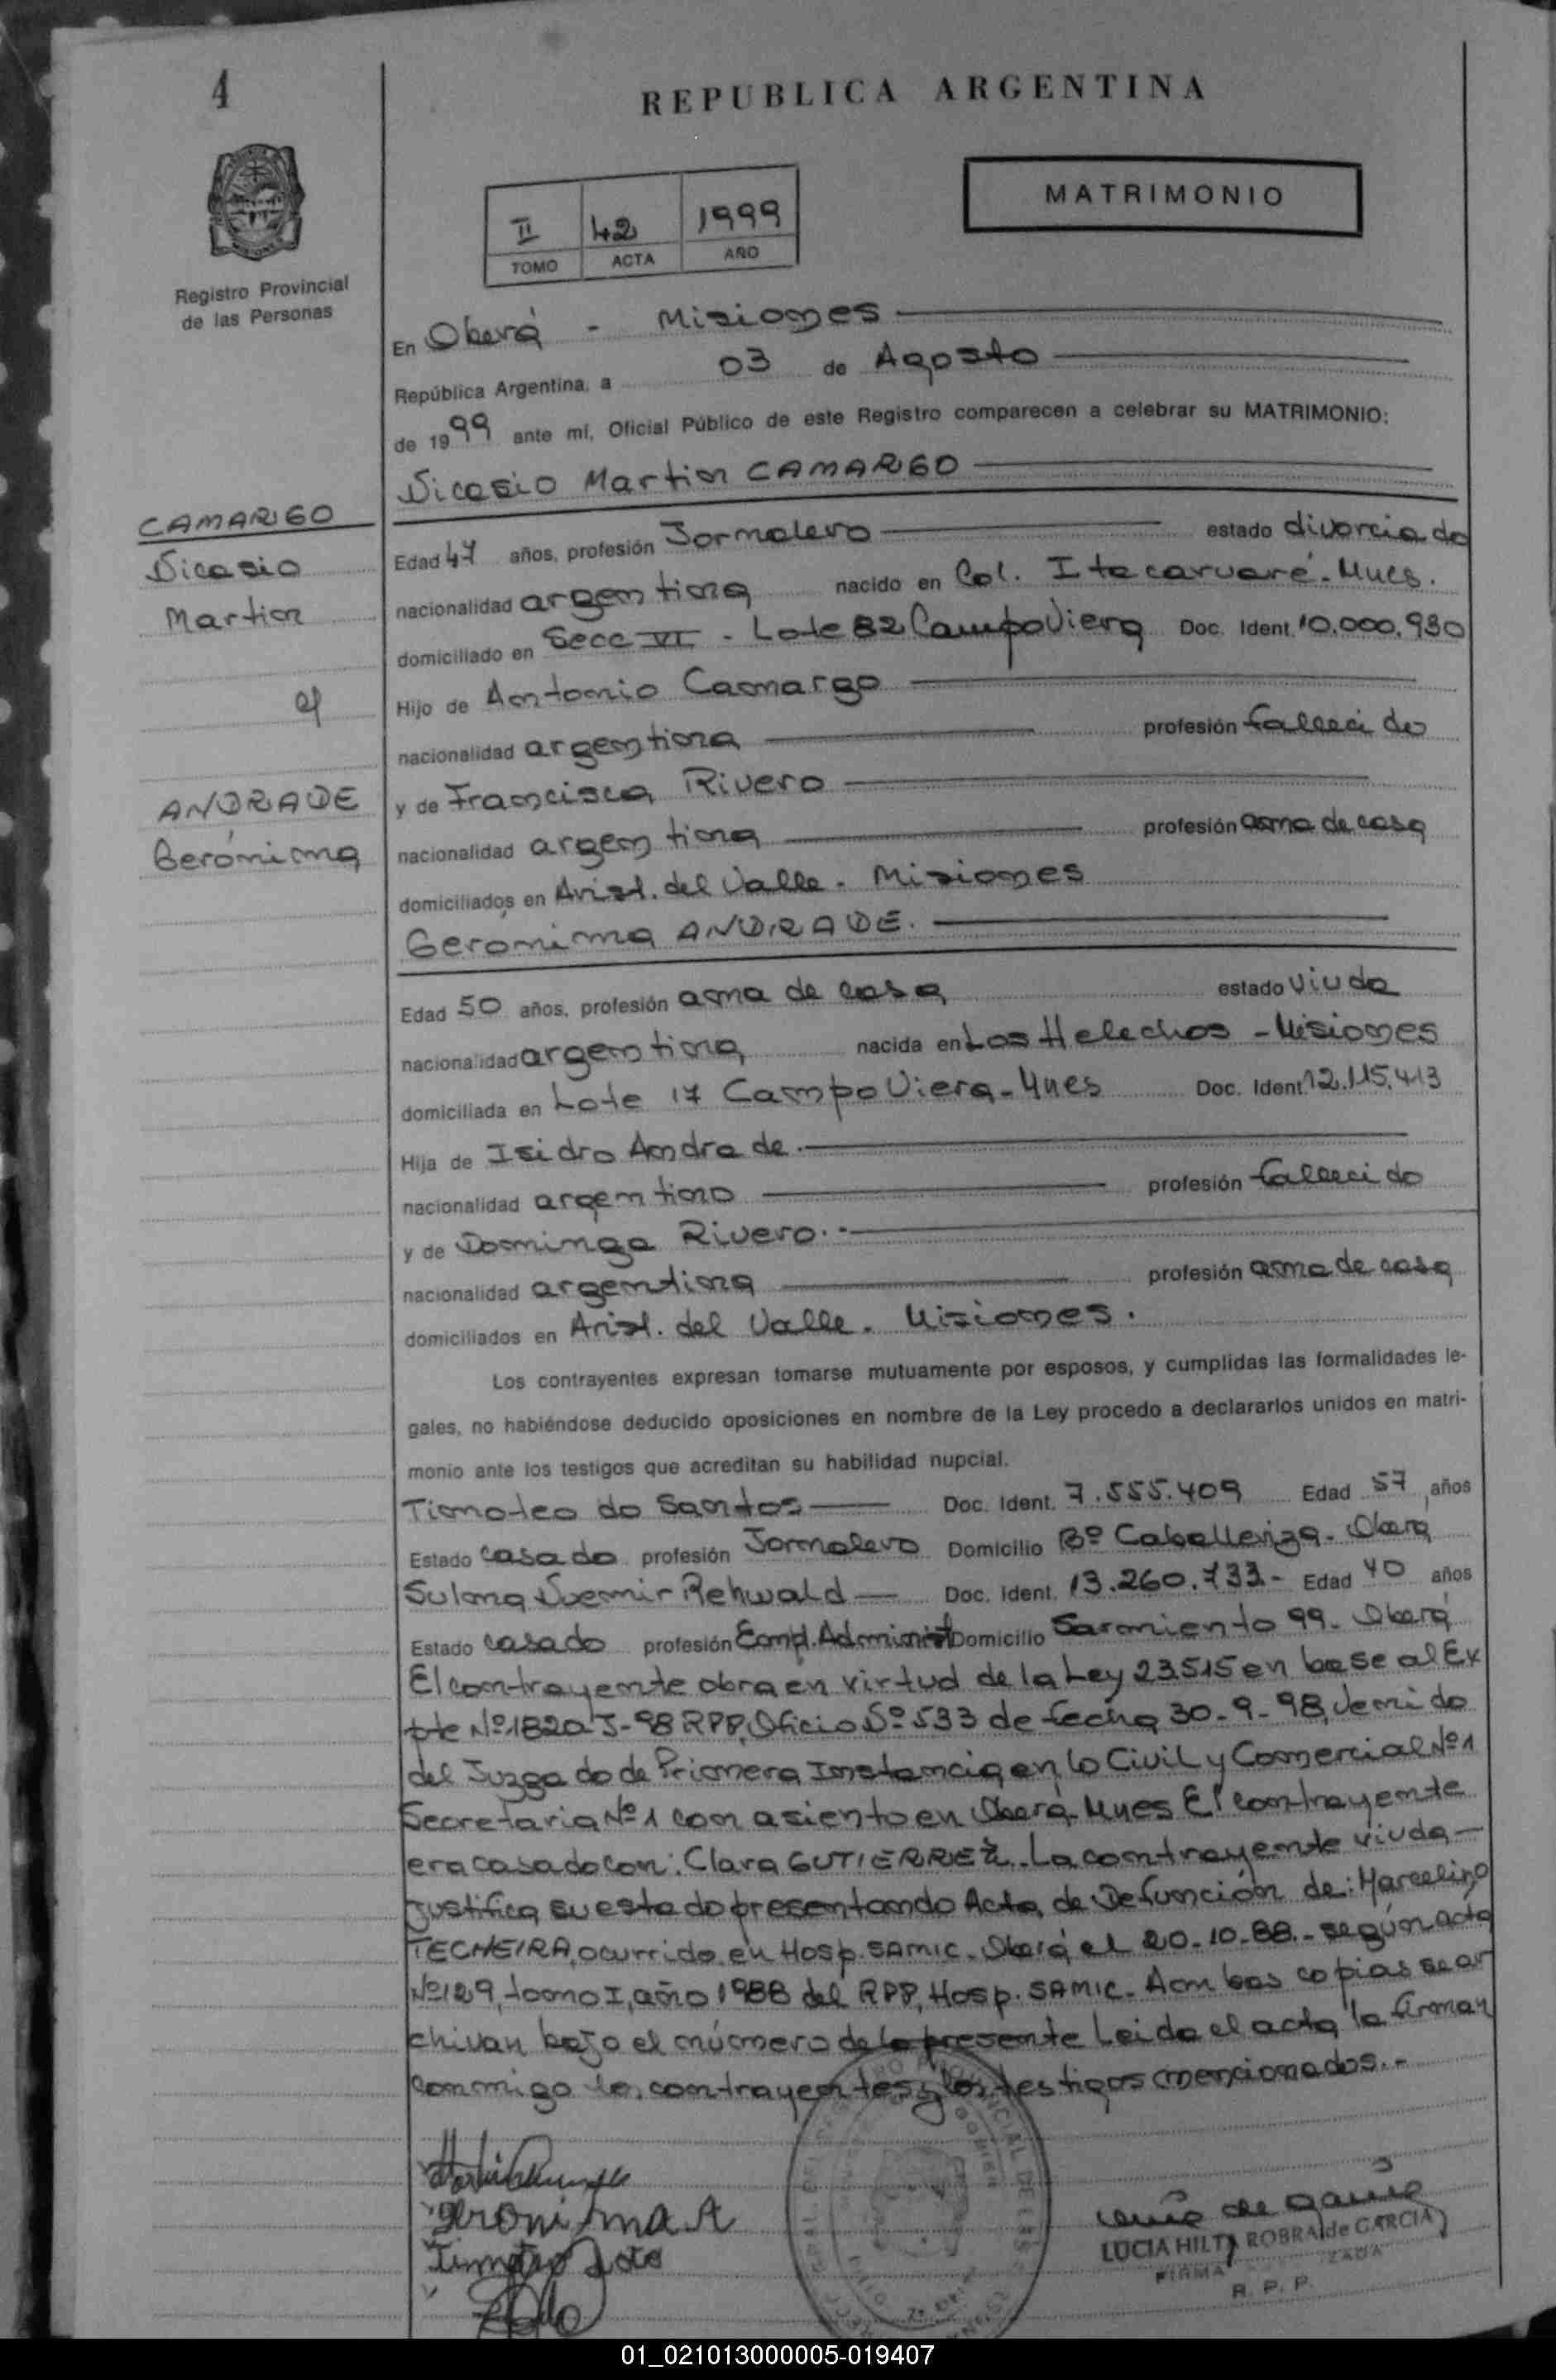 4
REPUBLICA ARGENTINA
MATRIMONIO
II 42 1999
TOMO ACTA AÑO
Registro Provincial
de las Personas
En Oberá - Misiones
República Argentina, a 03 de Agosto
de 1999 ante mí, Oficial Público de este Registro comparecen a celebrar su MATRIMONIO:
Nicasio Martin CAMARGO
CAMARGO
Nicasio
Martin
y
ANDRADE
Gerónima
Edad 47 años, profesión Jornalero estado divorciado
nacionalidad argentina nacido en Col. Itacaruaré - Mnes.
domiciliado en Secc VI - Lote 82 Campo Viera Doc. Ident. 10.000.930
Hijo de Antonio Camargo
nacionalidad argentina profesión fallecido
y de Francisca Rivero
nacionalidad argentina profesión ama de casa
domiciliados en Arist. del Valle - Misiones
Gerónima ANDRADE.
Edad 50 años, profesión ama de casa estado viuda
nacionalidad argentina nacida en Los Helechos - Misiones
domiciliada en Lote 17 Campo Viera - Mnes Doc. Ident. 12.115.413
Hija de Isidro Andrade.
nacionalidad argentino profesión fallecido
y de Dominga Rivero. -
nacionalidad argentina profesión ama de casa
domiciliados en Arist. del Valle - Misiones.
Los contrayentes expresan tomarse mutuamente por esposos, y cumplidas las formalidades le-
gales, no habiéndose deducido oposiciones en nombre de la Ley procedo a declararlos unidos en matri-
monio ante los testigos que acreditan su habilidad nupcial.
Timoteo do Santos Doc. Ident. 7.555.409 Edad 57 años
Estado casado profesión Jornalero Domicilio Bº Caballeriza - Oberá
Rehwald Doc. Ident. 13.260.733 - Edad 40 años
Estado casado profesión Empl. Administ Domicilio Sarmiento 99 - Oberá
El contrayente obra en virtud de la Ley 23515 en base al Ex
pte Nº 1820-J-98 RPP, Oficio Nº 533 de fecha 30-9-98, venido
del Juzgado de Primera Instancia en lo Civil y Comercial Nº 1
Secretaria Nº 1 con asiento en Oberá - Mnes El contrayente
era casado con: Clara GUTIERREZ. La contrayente viuda -
justifica su estado presentando Acta de Defunción de: Marcelino
TECHEIRA, ocurrido en Hosp. SAMIC - Oberá el 20-10-88.- según acta
Nº 129, tomo I, año 1988 del RPP, Hosp. SAMIC - Ambas copias se ar
chivan bajo el número de la presente Leida el acta la firman
conmigo los contrayentes y los testigos mencionados. -
Geronima A
LUCIA HILTA ROBRA de GARCIA
FIRMA
R. P. P.
01_021013000005-019407